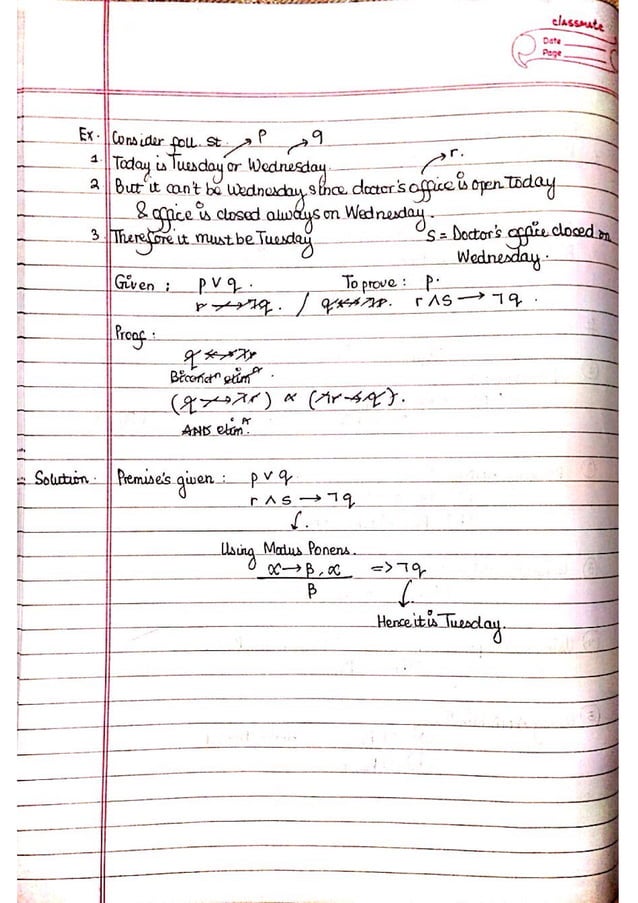 classmate
Date
Page
Ex. Consider foll. st. → p → q
1. Today is Tuesday or Wednesday. → r.
2 But it can't be Wednesday since doctor's office is open today
& office is closed always on Wednesday.
3 Therefore it must be Tuesday S = Doctor's office closed on
Wednesday.
Given : p ∨ q. To prove : p.
r → ¬q. / q ↔ ¬r. r ∧ s → ¬q.
Proof :
q ↔ ¬r
elimn.
(q → ¬r) ∝ (¬r → q).
AND elimn.
Solution. Premise's given : p ∨ q
r ∧ s → ¬q
Using Modus Ponens.
∝ → β, ∝ => ¬q
β
Hence it is Tuesday.